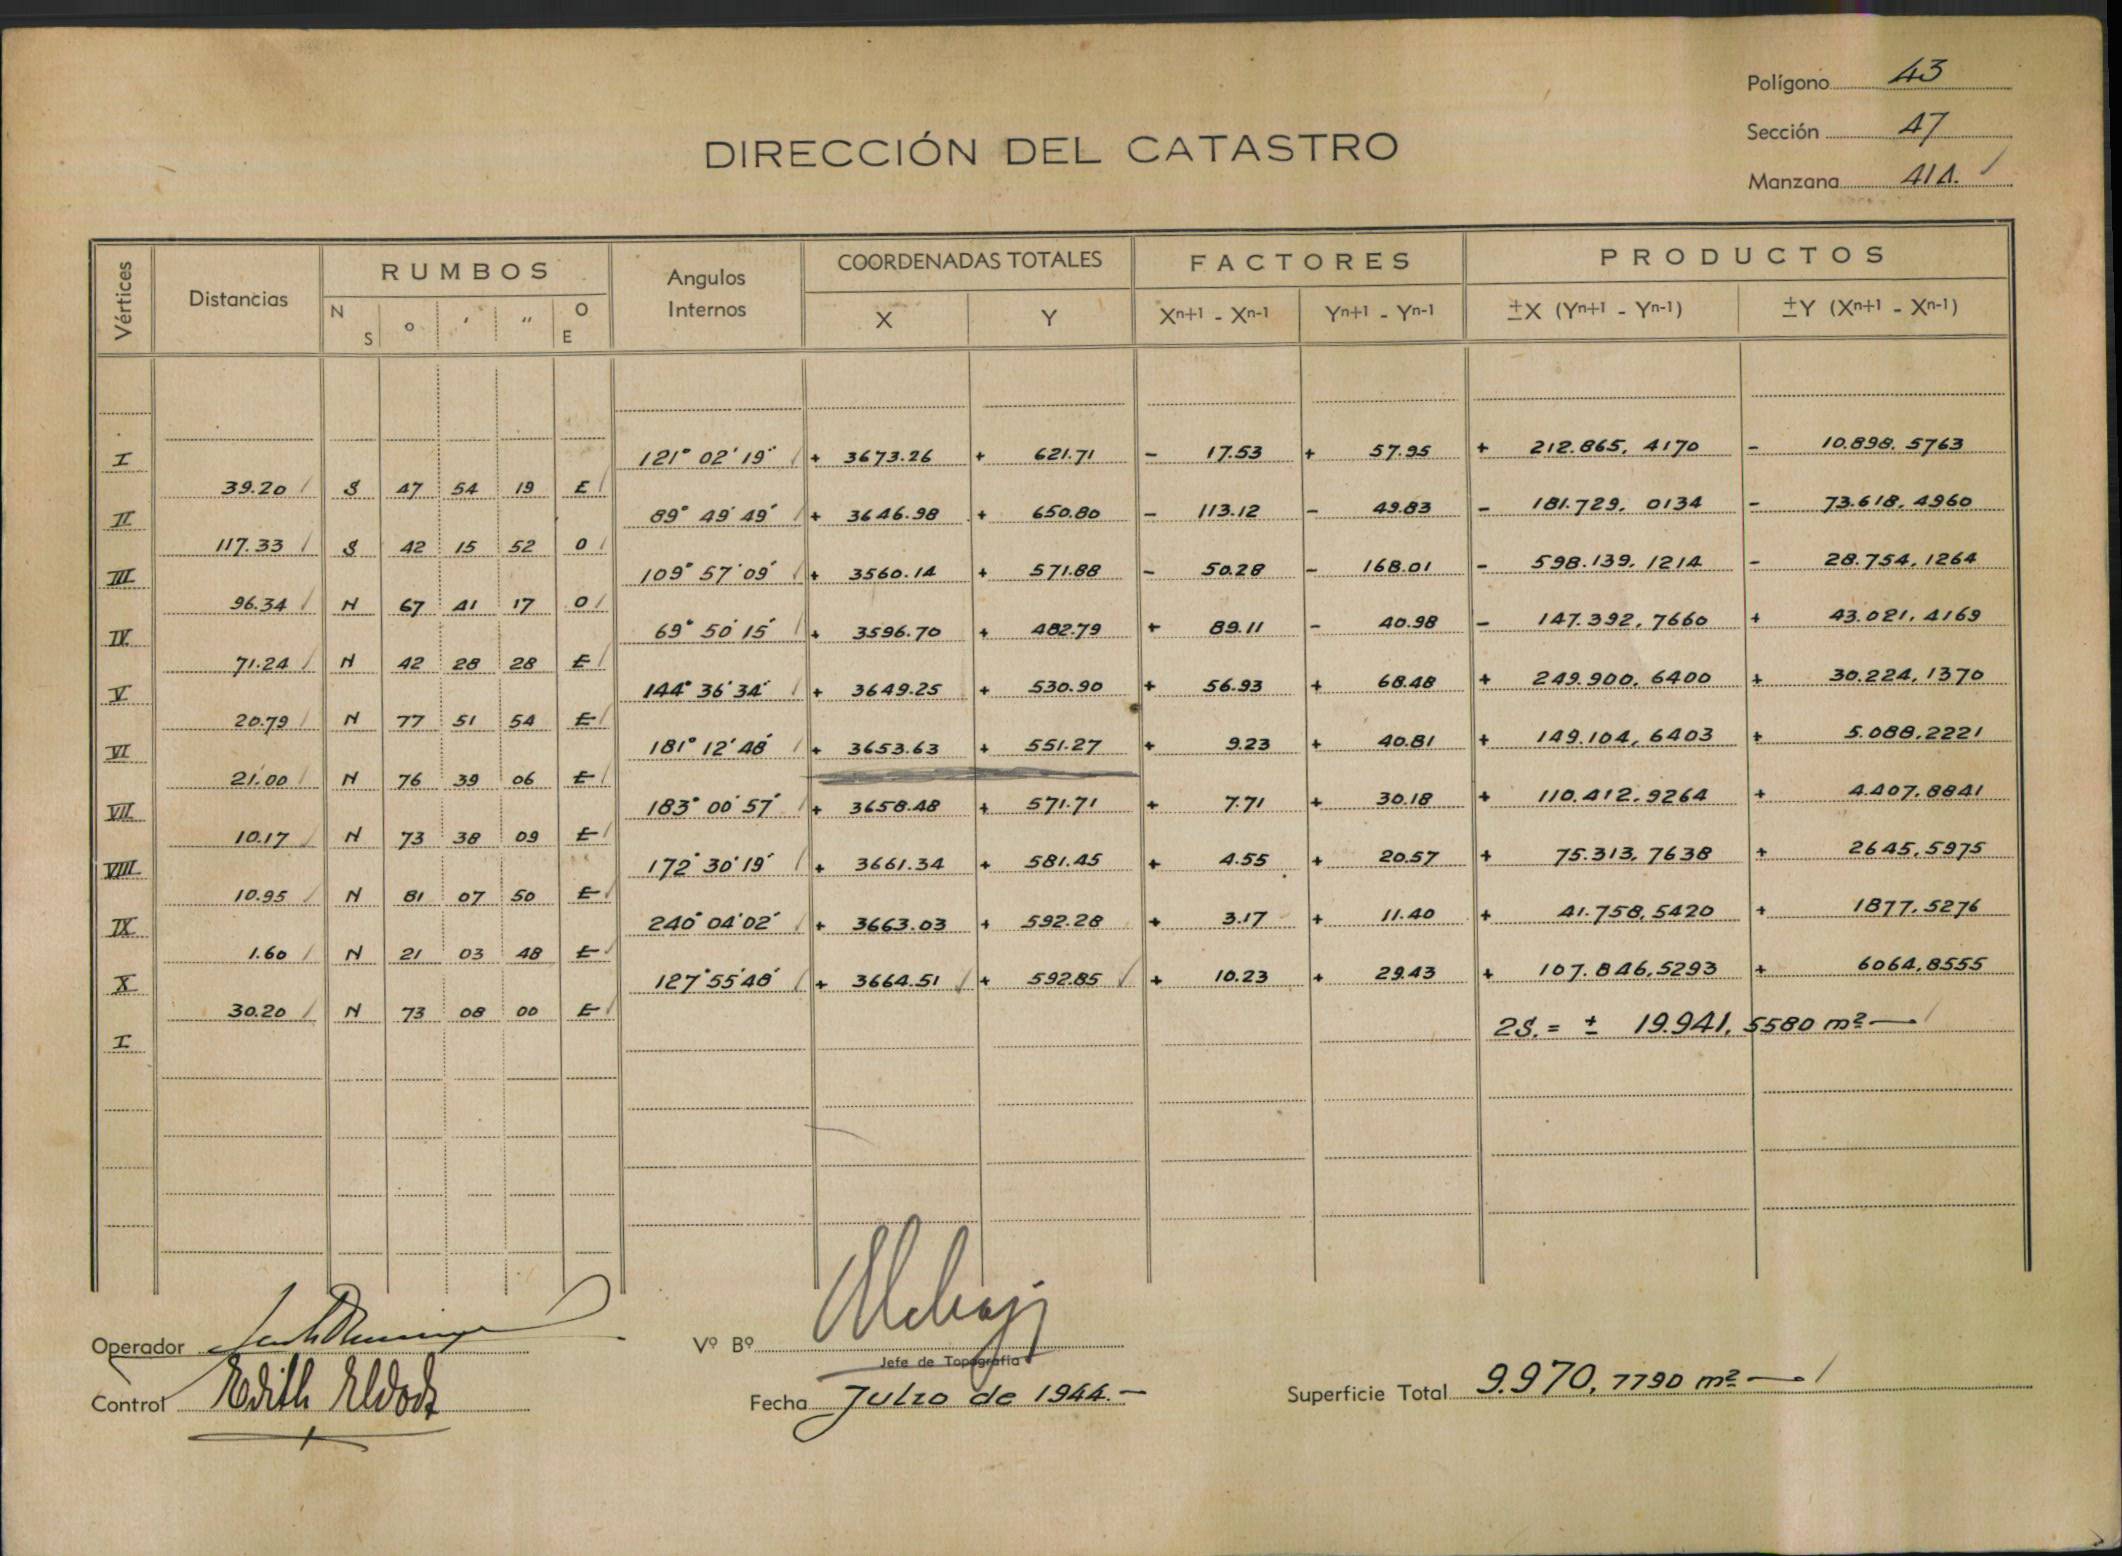 Polígono 43
Sección 47
Manzana 414.
DIRECCIÓN DEL CATASTRO
Vértices Distancias RUMBOS Angulos Internos COORDENADAS TOTALES FACTORES PRODUCTOS
N S o ′ ″ O E X Y Xn+1 - Xn-1 Yn+1 - Yn-1 ±X (Yn+1 - Yn-1) ±Y (Xn+1 - Xn-1)
I 121° 02' 19" + 3673.26 + 621.71 - 17.53 + 57.95 + 212.865,4170 - 10.898,5763
39.20 S 47 54 19 E
II 89° 49' 49" + 3646.98 + 650.80 - 113.12 - 49.83 - 181.729,0134 - 73.618,4960
117.33 S 42 15 52 O
III 109° 57' 09" + 3560.14 + 571.88 - 50.28 - 168.01 - 598.139,1214 - 28.754,1264
96.34 N 67 41 17 O
IV 69° 50' 15" + 3596.70 + 482.79 + 89.11 - 40.98 - 147.392,7660 + 43.021,4169
71.24 N 42 28 28 E
V 144° 36' 34" + 3649.25 + 530.90 + 56.93 + 68.48 + 249.900,6400 + 30.224,1370
20.79 N 77 51 54 E
VI 181° 12' 48" + 3653.63 + 551.27 + 9.23 + 40.81 + 149.104,6403 + 5.088,2221
21.00 N 76 39 06 E
VII 183° 00' 57" + 3658.48 + 571.71 + 7.71 + 30.18 + 110.412,9264 + 4.407,8841
10.17 N 73 38 09 E
VIII 172° 30' 19" + 3661.34 + 581.45 + 4.55 + 20.57 + 75.313,7638 + 2645,5975
10.95 N 81 07 50 E
IX 240° 04' 02" + 3663.03 + 592.28 + 3.17 + 11.40 + 41.758,5420 + 1877,5276
1.60 N 21 03 48 E
X 127° 55' 48" + 3664.51 + 592.85 + 10.23 + 29.43 + 107.846,5293 + 6064,8555
30.20 N 73 08 00 E
I 2S. = ± 19.941,5580 m²
Operador
Vº Bº
Jefe de Topografía
Control Edith
Fecha Julio de 1944.-
Superficie Total 9.970,7790 m²